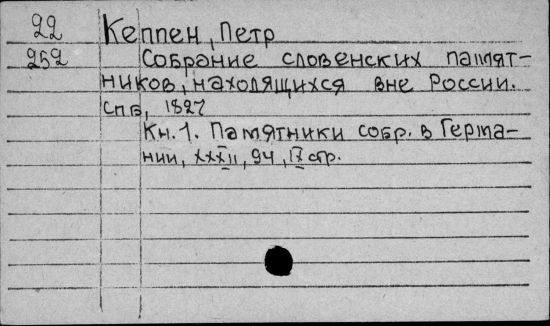 22
252
Кеппен, Петр
Собрание словенских памят-
ников, находящихся вне России.
Спб, 1827
Кн. 1. Памятники собр. в Герма-
нии, XXXII, 94, IX стр.